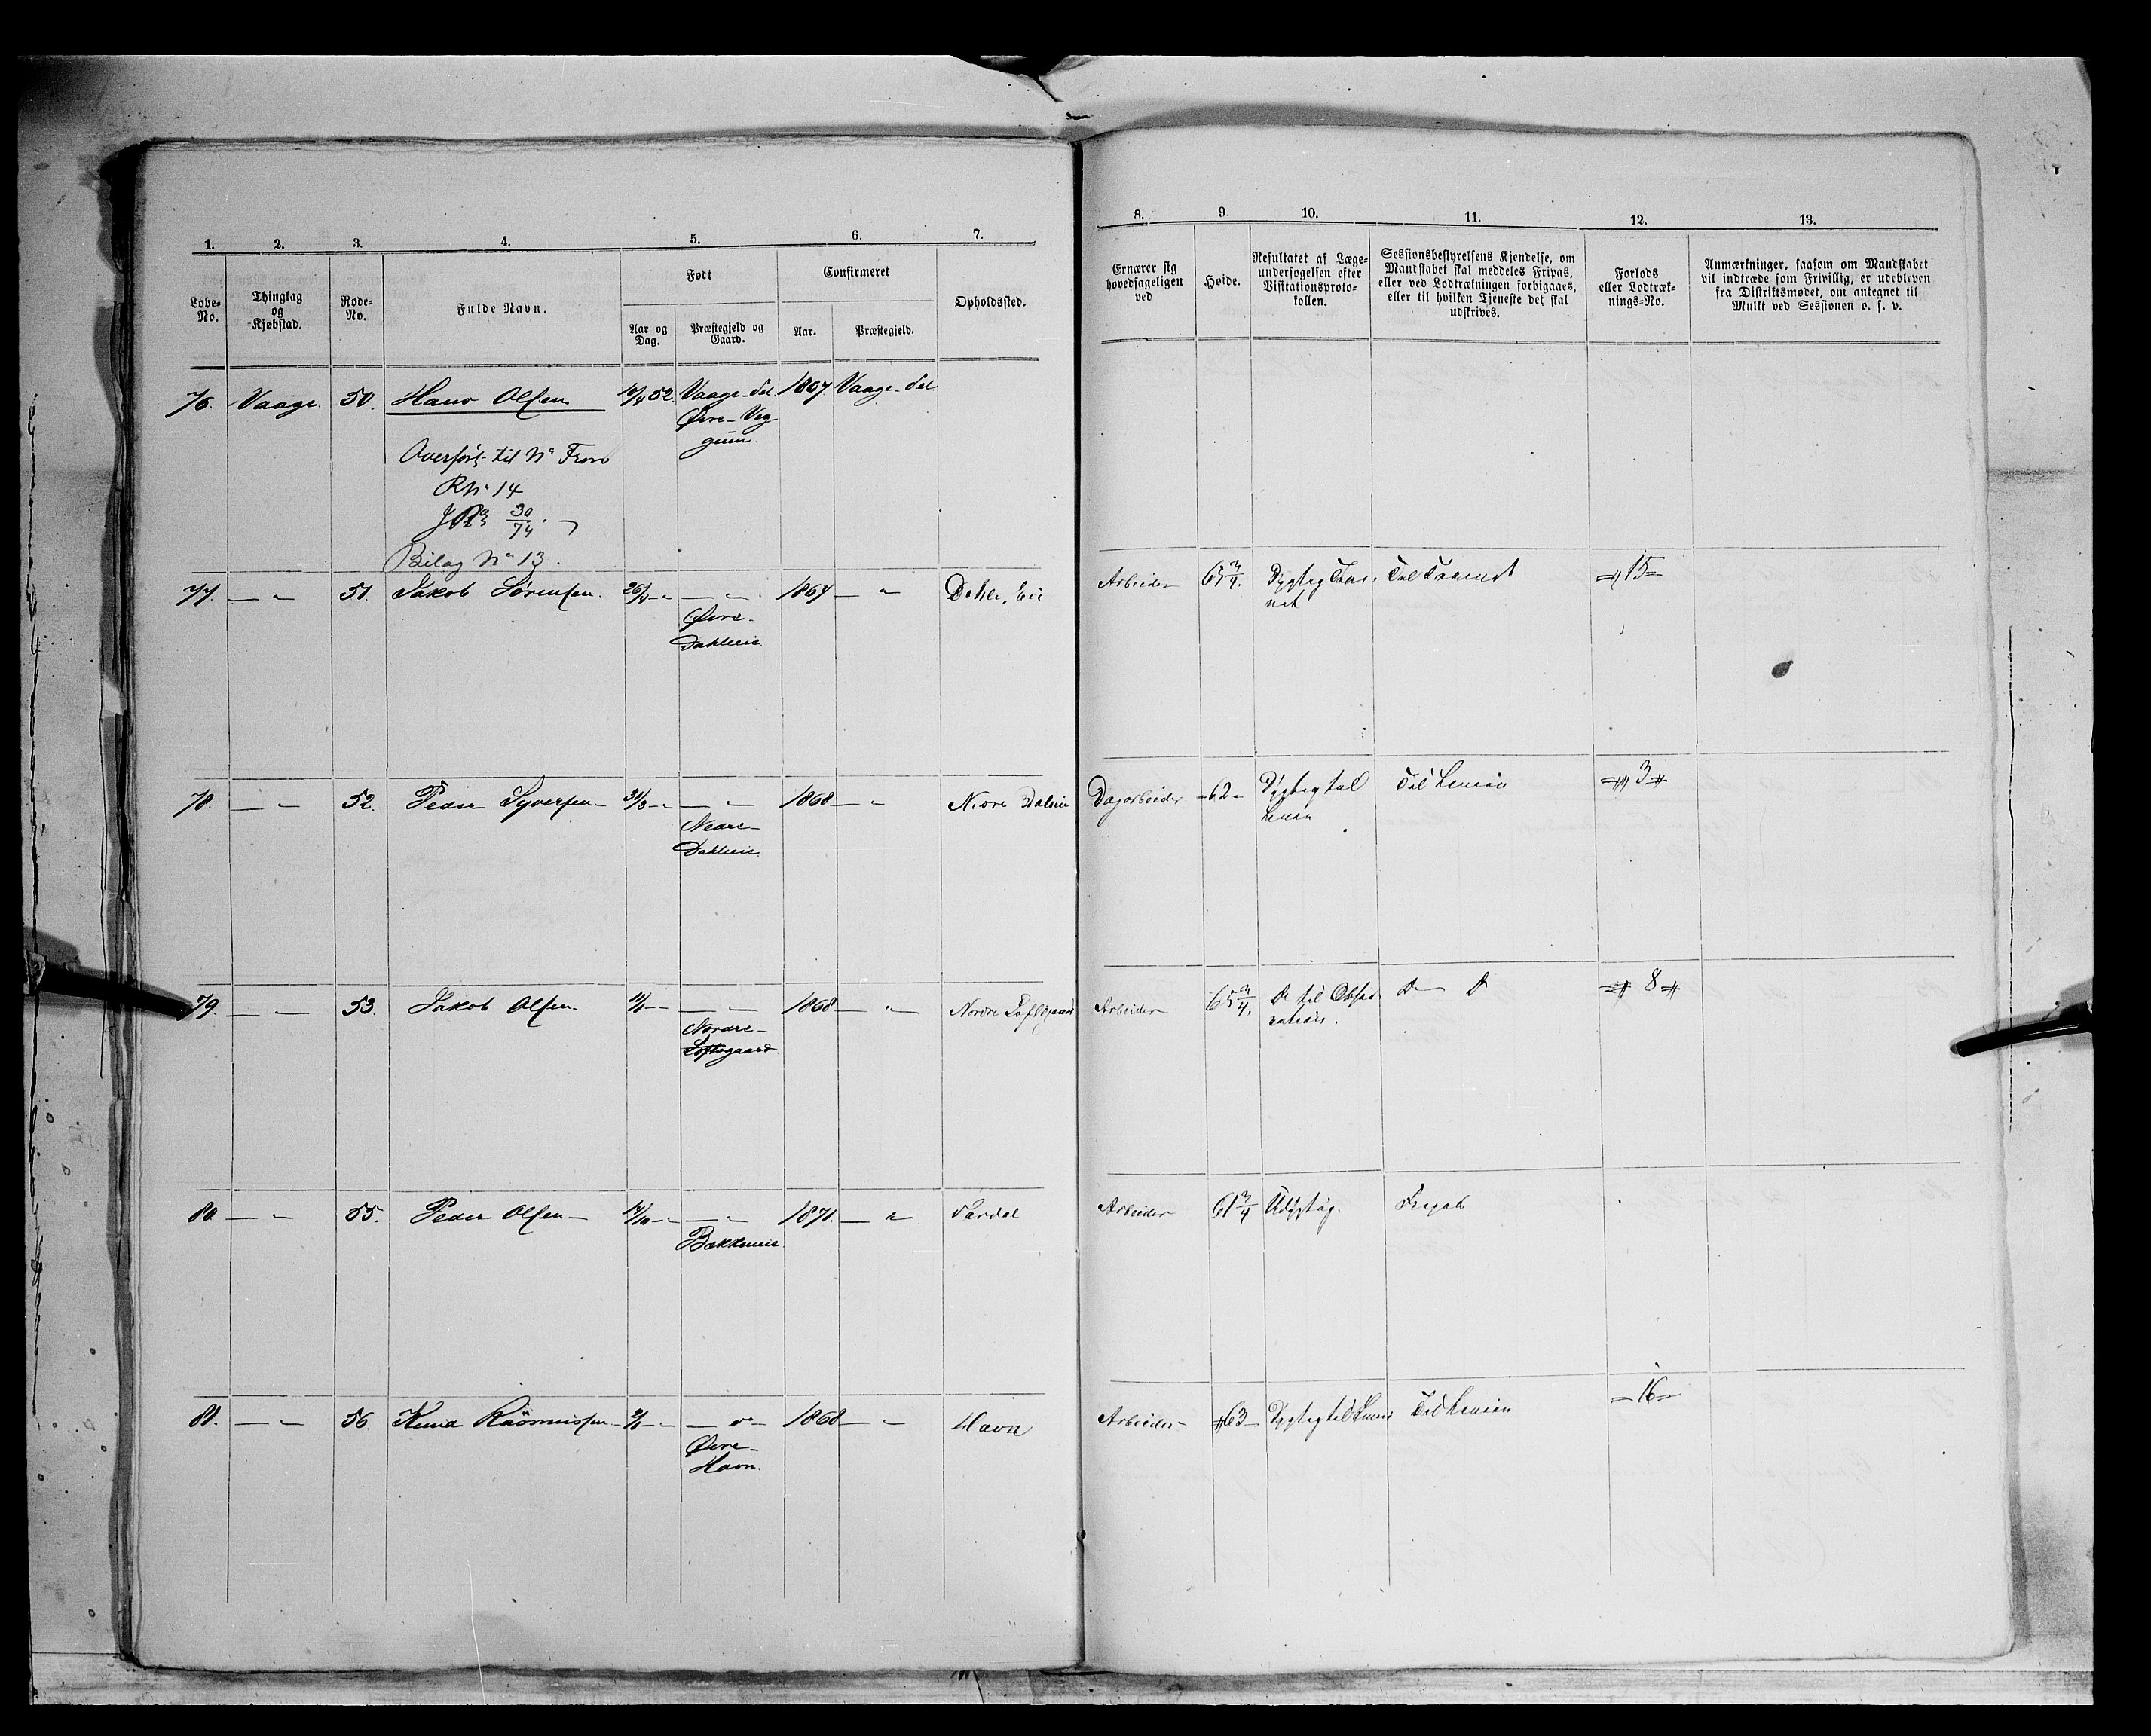 1. 2. 3. 4. 5. 6. 7.
Løbe-No. Thinglag og Kjøbstad. Rode-No. Fulde Navn. Født Confirmeret Opholdssted.
Aar og Dag. Præstegjeld og Gaard. Aar. Præstegjeld.
76. Vaage. 50. Hans Olsen 52. Vaage- 1867 Vaage-
Øvre-Veg-
gum.
Overført til No Fron
RNo 14
30/74.
Bilag No 13.
77. — " — 51. Jakob Sørensen. 26/4 - " — " — 1867 — " Dahle, Eie
Øvre-
Dahleeie
78. — " — 52. Peder Syversen 31/3 - " — " — 1868 — " Nedre Daleie
Nedre-
Dahleeie
79. — " — 53. Jakob Olsen — " — 1868 — " — Nordre Løftsgaard
Nordre-
Løftsgaard
80. — " — 55. Peder Olsen 14/10 - " — " — 1871. — " —
Bækkeneie
81. — " — 56. Knud Rasmussen — " — 1868 — " — Havn
Øvre-
Havn.
8. 9. 10. 11. 12. 13.
Ernærer sig hovedsageligen ved
Høide.
Resultatet af Læge-
undersøgelsen efter
Visitationsproto-
kollen.
Sessionsbestyrelsens Kjendelse, om
Mandskabet skal meddeles Fripas,
eller ved Lodtrækningen forbigaaes,
eller til hvilken Tjeneste det skal
udskrives.
Forlods
eller Lodtræk-
nings-No.
Anmærkninger, saasom om Mandskabet
vil indtræde som Frivillig, er udebleven
fra Distriktsmødet, om antegnet til
Mulkt ved Sessionen o. s. v.
Arbeider 65 3/4. Dygtig Træ- Til Trænet 15
net
Dagarbeider 62 Dygtig til Til Linien 3
Linien
Arbeider 65 3/4. Do til Do Do 8
Arbeider 61 3/4 Udygtig. Fripas
Arbeider 63 Dygtig til Linien Til Linien 16